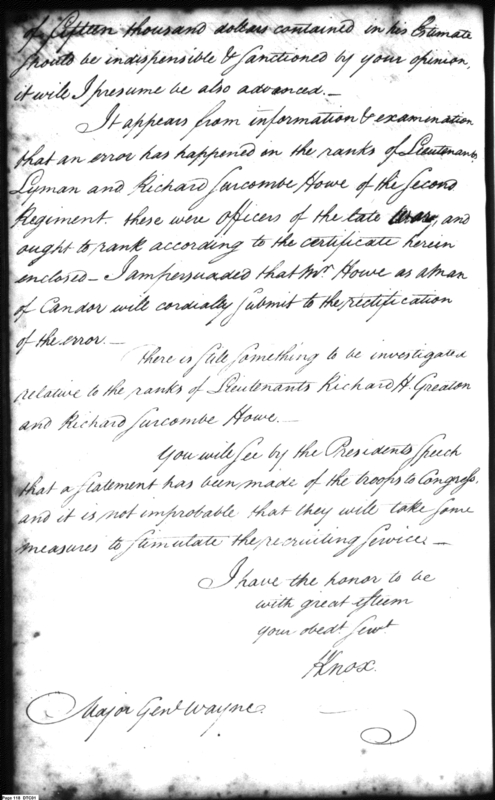 of fifteen thousand dollars contained in his Estimate
should be indispensible & sanctioned by your opinion,
it will I presume be also advanced.—
It appears from information & examination
that an error has happened in the ranks of Lieutenants
Lyman and Richard Surcombe Howe of the Second
Regiment. these were officers of the late and
ought to rank according to the certificate herein
enclosed— I am persuaded that Mr. Howe as a Man
of Candor will cordially submit to the rectification
of the error.—
There is still something to be investigated
relative to the ranks of Lieutenants Richard H. Greaton
and Richard Surcombe Howe.—
You will see by the Presidents speech
that a statement has been made of the troops to Congress,
and it is not improbable that they will take some
measures to stimulate the recruiting service—
I have the honor to be
with great esteem
your obedt. Servt.
HKnox.
Major Genl. Wayne.
Page 118 DTC01